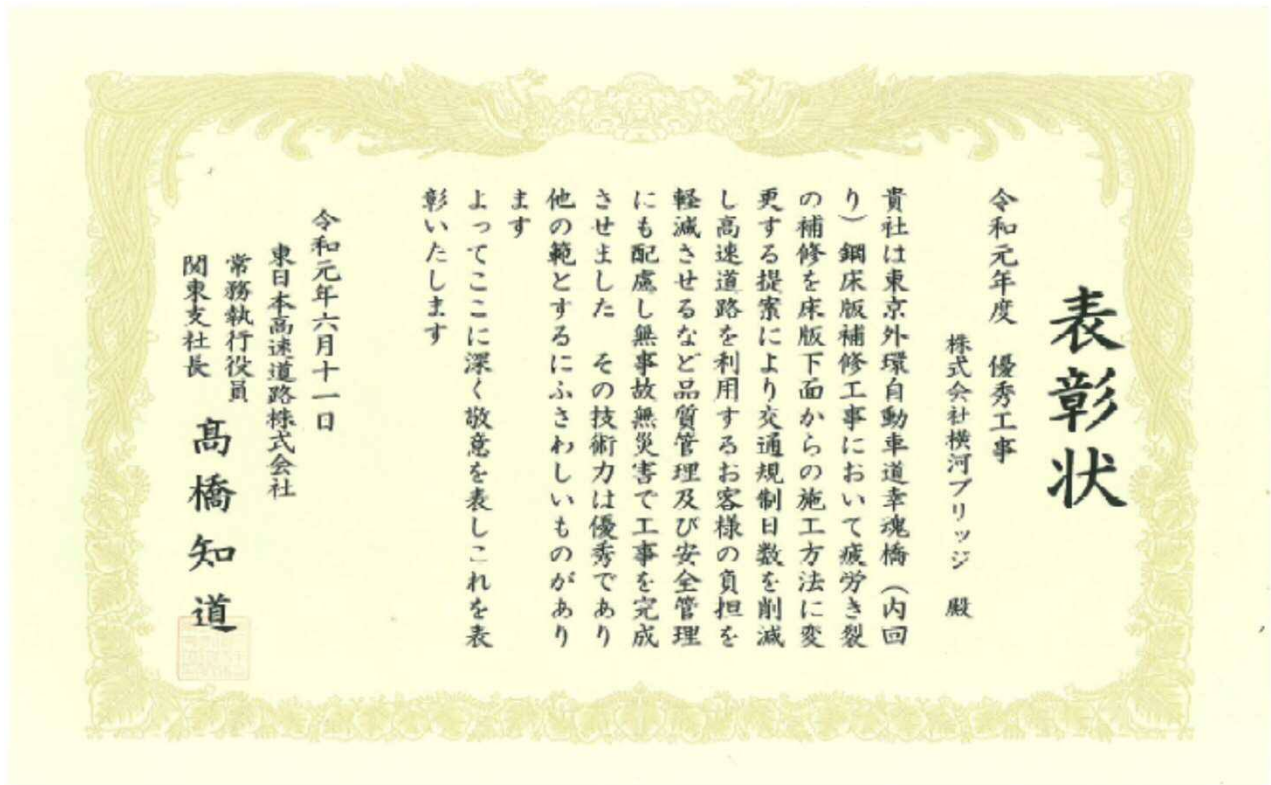 表彰状
令和元年度　優秀工事
株式会社横河ブリッジ　殿
貴社は東京外環自動車道幸魂橋（内回
り）鋼床版補修工事において疲労き裂
の補修を床版下面からの施工方法に変
更する提案により交通規制日数を削減
し高速道路を利用するお客様の負担を
軽減させるなど品質管理及び安全管理
にも配慮し無事故無災害で工事を完成
させました　その技術力は優秀であり
他の範とするにふさわしいものがあり
ます
よってここに深く敬意を表しこれを表
彰いたします
令和元年六月十一日
東日本高速道路株式会社
常務執行役員
関東支社長
髙橋知道